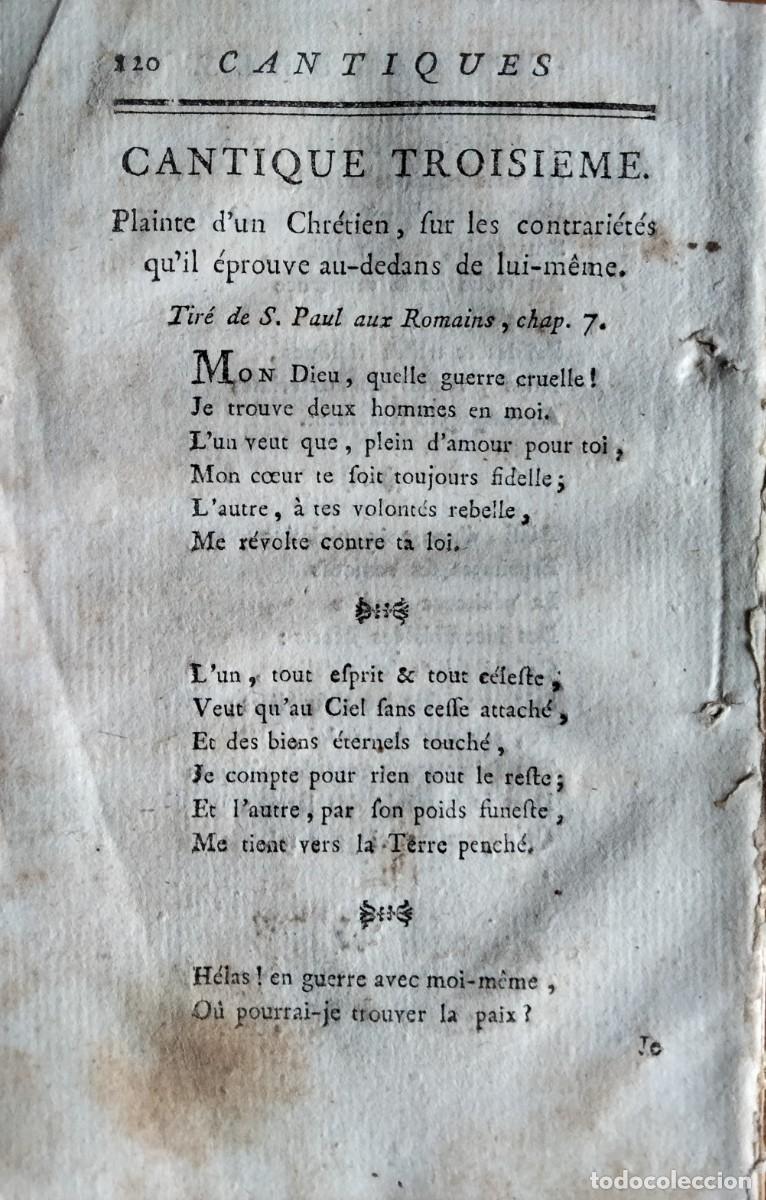 120 CANTIQUES
CANTIQUE TROISIEME.
Plainte d'un Chrétien, ſur les contrariétés
qu'il éprouve au-dedans de lui-même.
Tiré de S. Paul aux Romains, chap. 7.
MON Dieu, quelle guerre cruelle!
Je trouve deux hommes en moi.
L'un veut que, plein d'amour pour toi,
Mon cœur te ſoit toujours fidelle;
L'autre, à tes volontés rebelle,
Me révolte contre ta loi.
L'un, tout eſprit & tout céleſte,
Veut qu'au Ciel ſans ceſſe attaché,
Et des biens éternels touché,
Je compte pour rien tout le reſte;
Et l'autre, par ſon poids funeſte,
Me tient vers la Terre penché.
Hélas! en guerre avec moi-même,
Où pourrai-je trouver la paix?
Je
todocoleccion